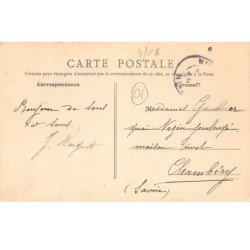 4/03
CARTE POSTALE
Certains pays étrangers n'acceptent pas la correspondance de ce côté, se renseigner à la Poste
Correspondance
Adresse
01
Bonjour de bout
à bout
J.
Mesdames Gauthier
quai Nezin prolongé
maison
Chambéry
(Savoie)